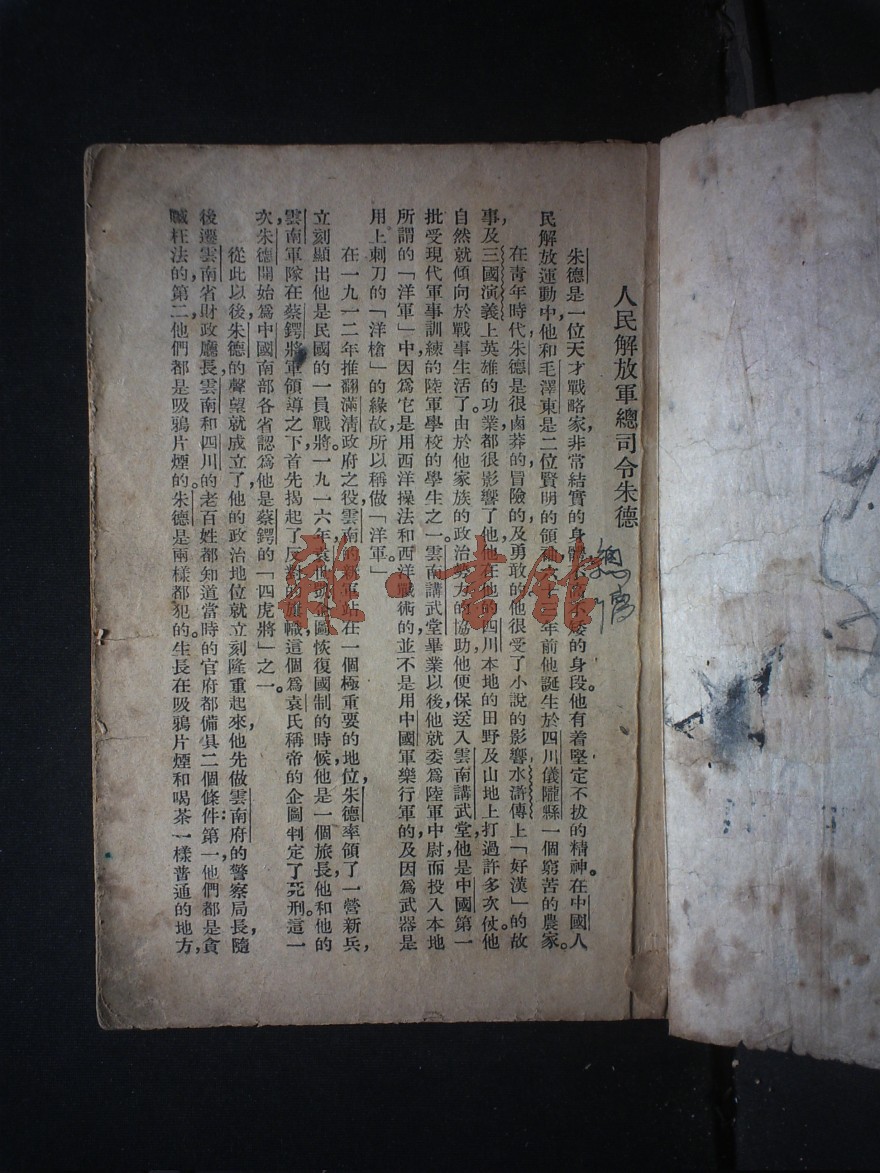 人民解放軍總司令朱德
朱德是一位天才戰略家,非常結實的身體,不高不矮的身段。他有着堅定不拔的精神。在中國人
民解放運動中,他和毛澤東是二位賢明的領袖。六十 年前他誕生於四川儀隴縣一個窮苦的農家。
在青年時代,朱德是很鹵莽的,冒險的,及勇敢的,他很受了小說的影響,水滸傳上「好漢」的故
事,及三國演義上英雄的功業都很影響了他,他在他的四川本地的田野及山地上打過許多次仗。他
自然就傾向於戰事生活了。由於他家族的政治勢力的協助,他便保送入雲南講武堂,他是中國第一
批受現代軍事訓練的陸軍學校的學生之一。雲南講武堂畢業以後,他就委爲陸軍中尉,而投入本地
所謂的「洋軍」中,因爲它是用西洋操法和西洋戰術的,並不是用中國軍樂行軍的,及因爲武器是
用上刺刀的「洋槍」的緣故,所以稱做「洋軍」
在一九一二年推翻滿清政府之役,雲南的新軍站在一個極重要的地位,朱德率領了一營新兵,
立刻顯出他是民國的一員戰將。一九一六年,袁世凱企圖恢復國制的時候,他是一個旅長,他和他的
雲南軍隊在蔡鍔將軍領導之下首先揭起了反對的旗幟,這個爲袁氏稱帝的企圖判定了死刑。這一
次,朱德開始爲中國南部各省認爲他是蔡鍔的「四虎將」之一。
從此以後,朱德的聲望就成立了,他的政治地位就立刻隆重起來,他先做雲南府的警察局長,隨
後遷雲南省財政廳長,雲南和四川的老百姓都知道當時的官府都備具二個條件:第一,他們都是貪
贓枉法的,第二,他們都是吸鴉片煙的。朱德是兩樣都犯的。生長在吸鴉片煙和喝茶一樣普通的地方,
雅·書館